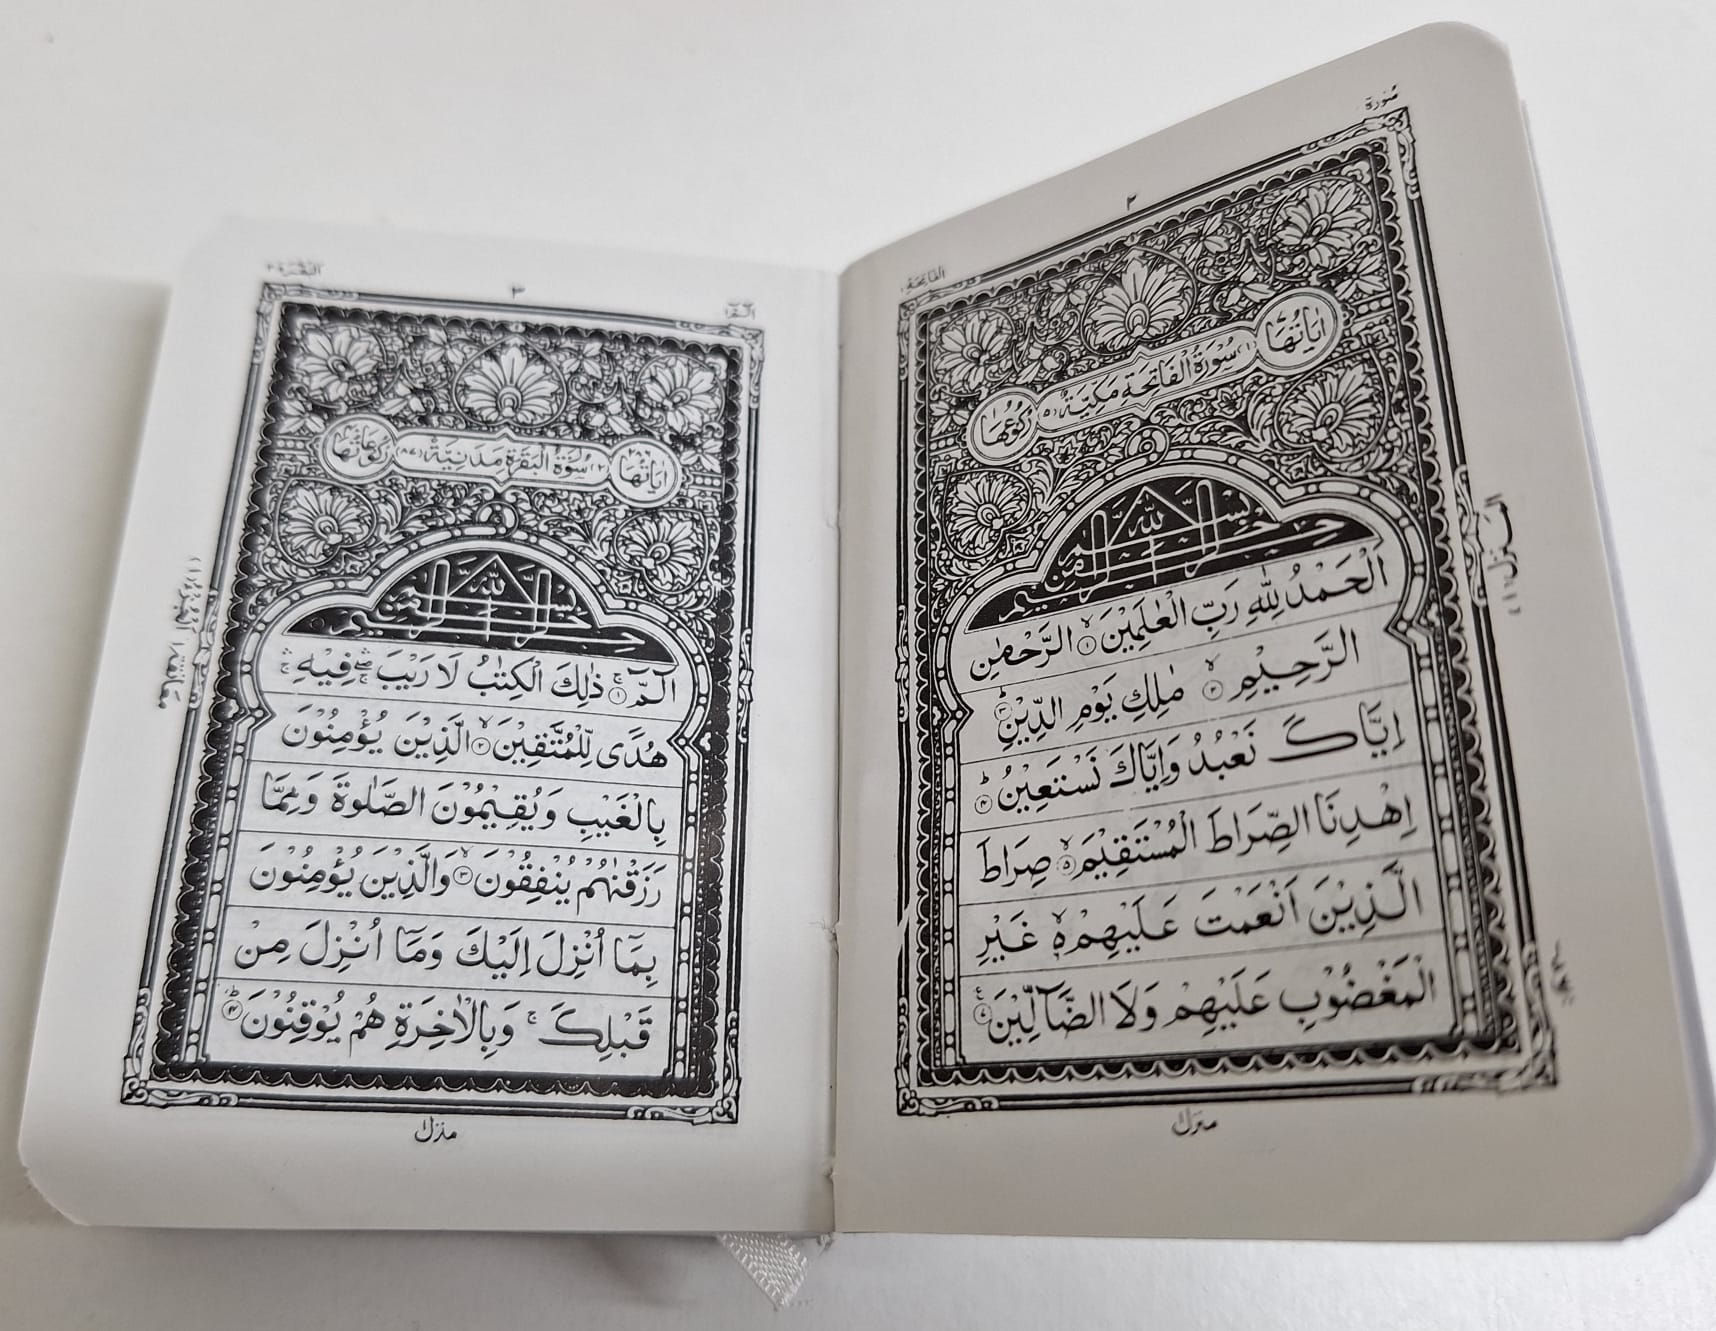 ٢
سورة
الفاتحة ١
اٰيَاتُهَا ٧
(١) سُوْرَةُ الْفَاتِحَةِ مَكِّيَّةٌ (٥)
رُكُوْعُهَا ١
بِسْمِ اللّٰهِ الرَّحْمٰنِ الرَّحِيْمِ
اَلْحَمْدُ لِلّٰهِ رَبِّ الْعٰلَمِيْنَ ۙ﴿١﴾ الرَّحْمٰنِ
الرَّحِيْمِ ۙ﴿٢﴾ مٰلِكِ يَوْمِ الدِّيْنِ ؕ﴿٣﴾
اِيَّاكَ نَعْبُدُ وَاِيَّاكَ نَسْتَعِيْنُ ؕ﴿٤﴾
اِهْدِنَا الصِّرَاطَ الْمُسْتَقِيْمَ ۙ﴿٥﴾ صِرَاطَ
الَّذِيْنَ اَنْعَمْتَ عَلَيْهِمْ ۙ۬ غَيْرِ
الْمَغْضُوْبِ عَلَيْهِمْ وَلَا الضَّآلِّيْنَ ﴿٦﴾
منزل
المنزل
٣
البقرة ٢
اٰيَاتُهَا ٢٨٦
(٢) سُوْرَةُ الْبَقَرَةِ مَدَنِيَّةٌ (٨٧)
رُكُوْعَاتُهَا
بِسْمِ اللّٰهِ الرَّحْمٰنِ الرَّحِيْمِ
الٓمّٓ ۚ﴿١﴾ ذٰلِكَ الْكِتٰبُ لَا رَيْبَ ۛۖۚ فِيْهِ ۛۚ
هُدًى لِّلْمُتَّقِيْنَ ۙ﴿٢﴾ الَّذِيْنَ يُؤْمِنُوْنَ
بِالْغَيْبِ وَيُقِيْمُوْنَ الصَّلٰوةَ وَمِمَّا
رَزَقْنٰهُمْ يُنْفِقُوْنَ ۙ﴿٣﴾ وَالَّذِيْنَ يُؤْمِنُوْنَ
بِمَآ اُنْزِلَ اِلَيْكَ وَمَآ اُنْزِلَ مِنْ
قَبْلِكَ ۚ وَبِالْاٰخِرَةِ هُمْ يُوْقِنُوْنَ ؕ﴿٤﴾
منزل